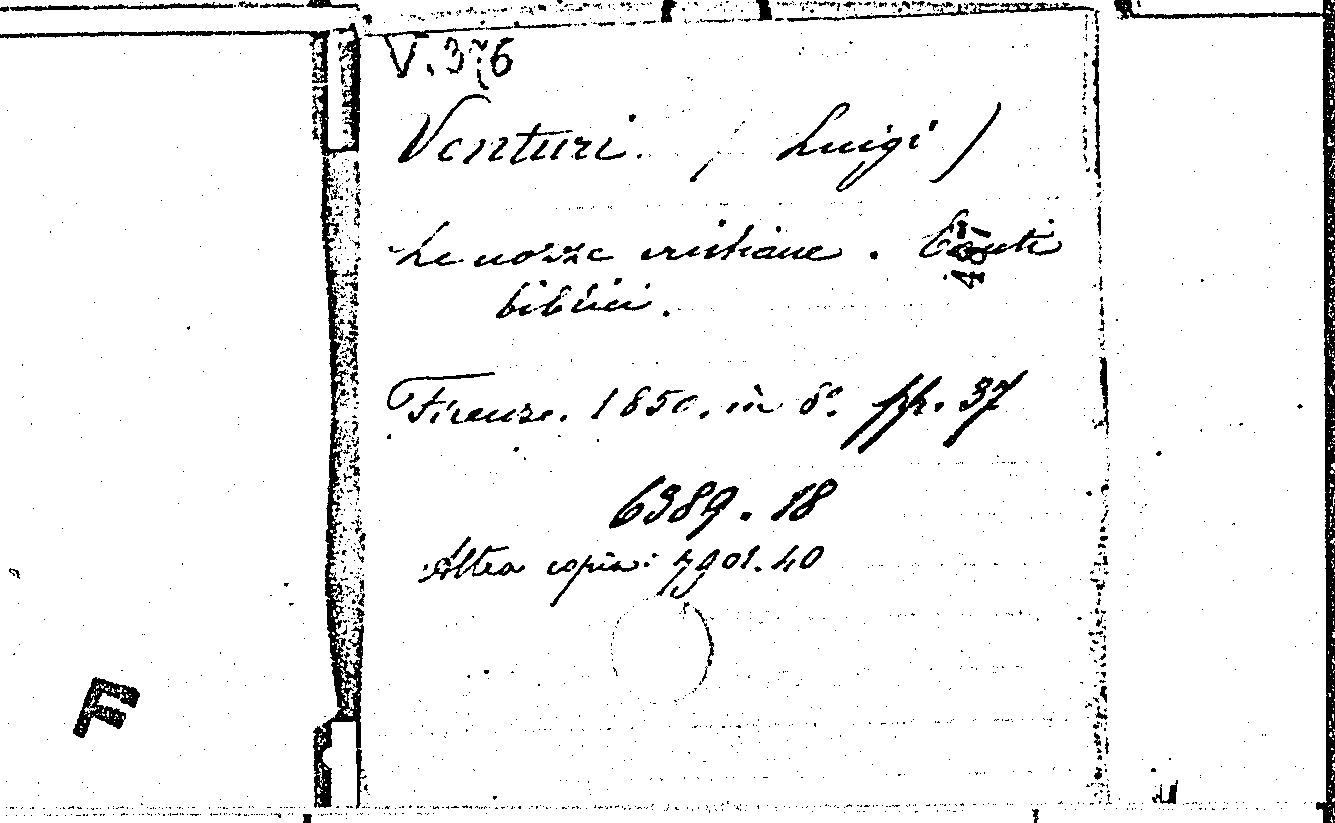 V. 376
Venturi. (Luigi)
Le nozze cristiane. Canti
biblici.
Firenze. 1850. in 8º. pp. 37
6389.18
Altra copia: 7901.40
F